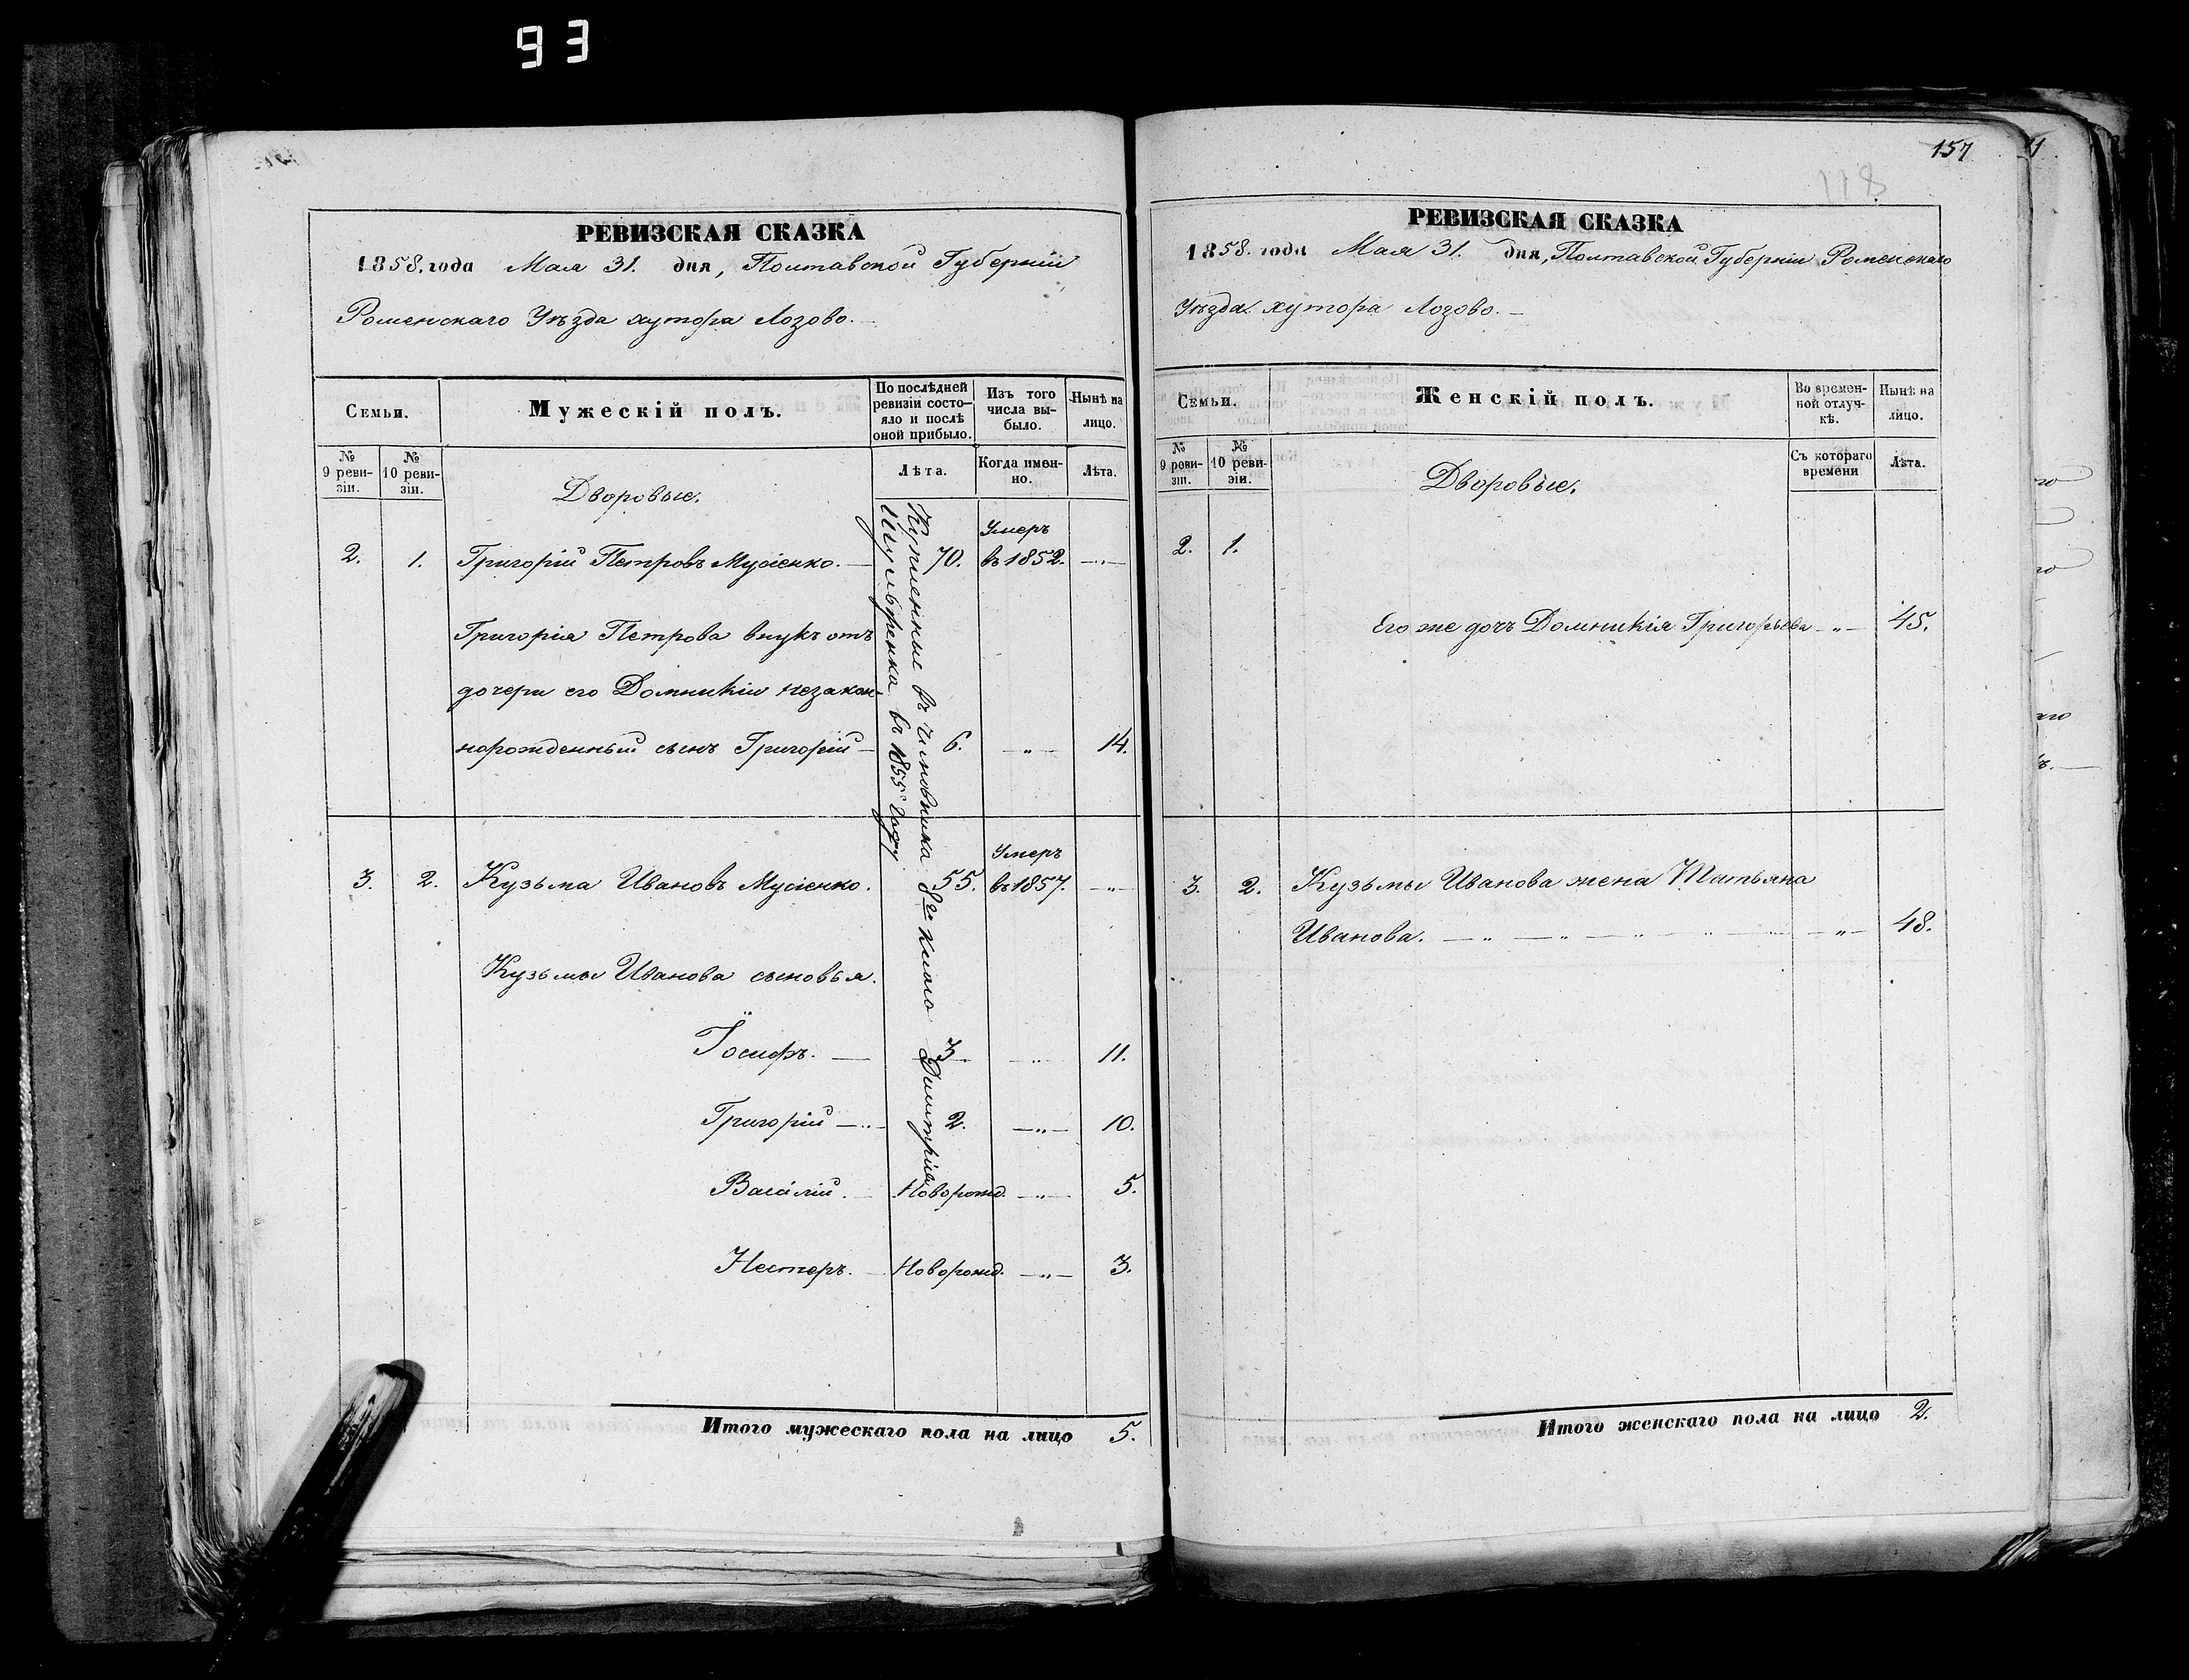 93
РЕВИЗСКАЯ СКАЗКА
1858. года Мая 31. дня, Полтавской Губерніи
Роменскаго Уѣзда хутора Лозово.
Семьи.
Мужескій полъ.
По послѣдней
ревизіи состо-
яло и послѣ
оной прибыло.
Изъ того
числа вы-
было.
Нынѣ на
лицо.
№
9 реви-
зіи.
№
10 реви-
зіи.
Лѣта.
Когда имен-
но.
Лѣта.
Дворовые.
Купленные въ чиновника 8го класса Димитрія
въ 1855 году.
Умеръ
2. 1. Григорій Петровъ Мусіенко. — 70. въ 1852. —"—
Григорія Петрова внукъ отъ
дочери его Домникіи незакон-
норожденный сынъ Григорій — 6. —"— 14.
Умеръ
3. 2. Кузьма Ивановъ Мусіенко. 55. въ 1857. —"—
Кузьмы Иванова сыновья.
Іосифъ. — 3. —"— 11.
Григорій —"— 2. —"— 10.
Василій. — Новорожд. —"— 5.
Нестеръ. — Новорожд. —"— 3.
Итого мужескаго пола на лицо 5.
157
118
РЕВИЗСКАЯ СКАЗКА
1858. года Мая 31. дня, Полтавской Губерніи Роменскаго
Уѣзда хутора Лозово. —
Семьи.
Женскій полъ.
Во времен-
ной отлуч-
кѣ.
Нынѣ на
лицо.
№
9 реви-
зіи.
№
10 реви-
зіи.
Съ котораго
времени
Лѣта.
Дворовые.
2. 1.
Его же дочь Домникія Григорьева —"— 45.
3. 2. Кузьмы Иванова жена Татьяна
Иванова. —"—"—"—"— 48.
Итого женскаго пола на лицо 2.